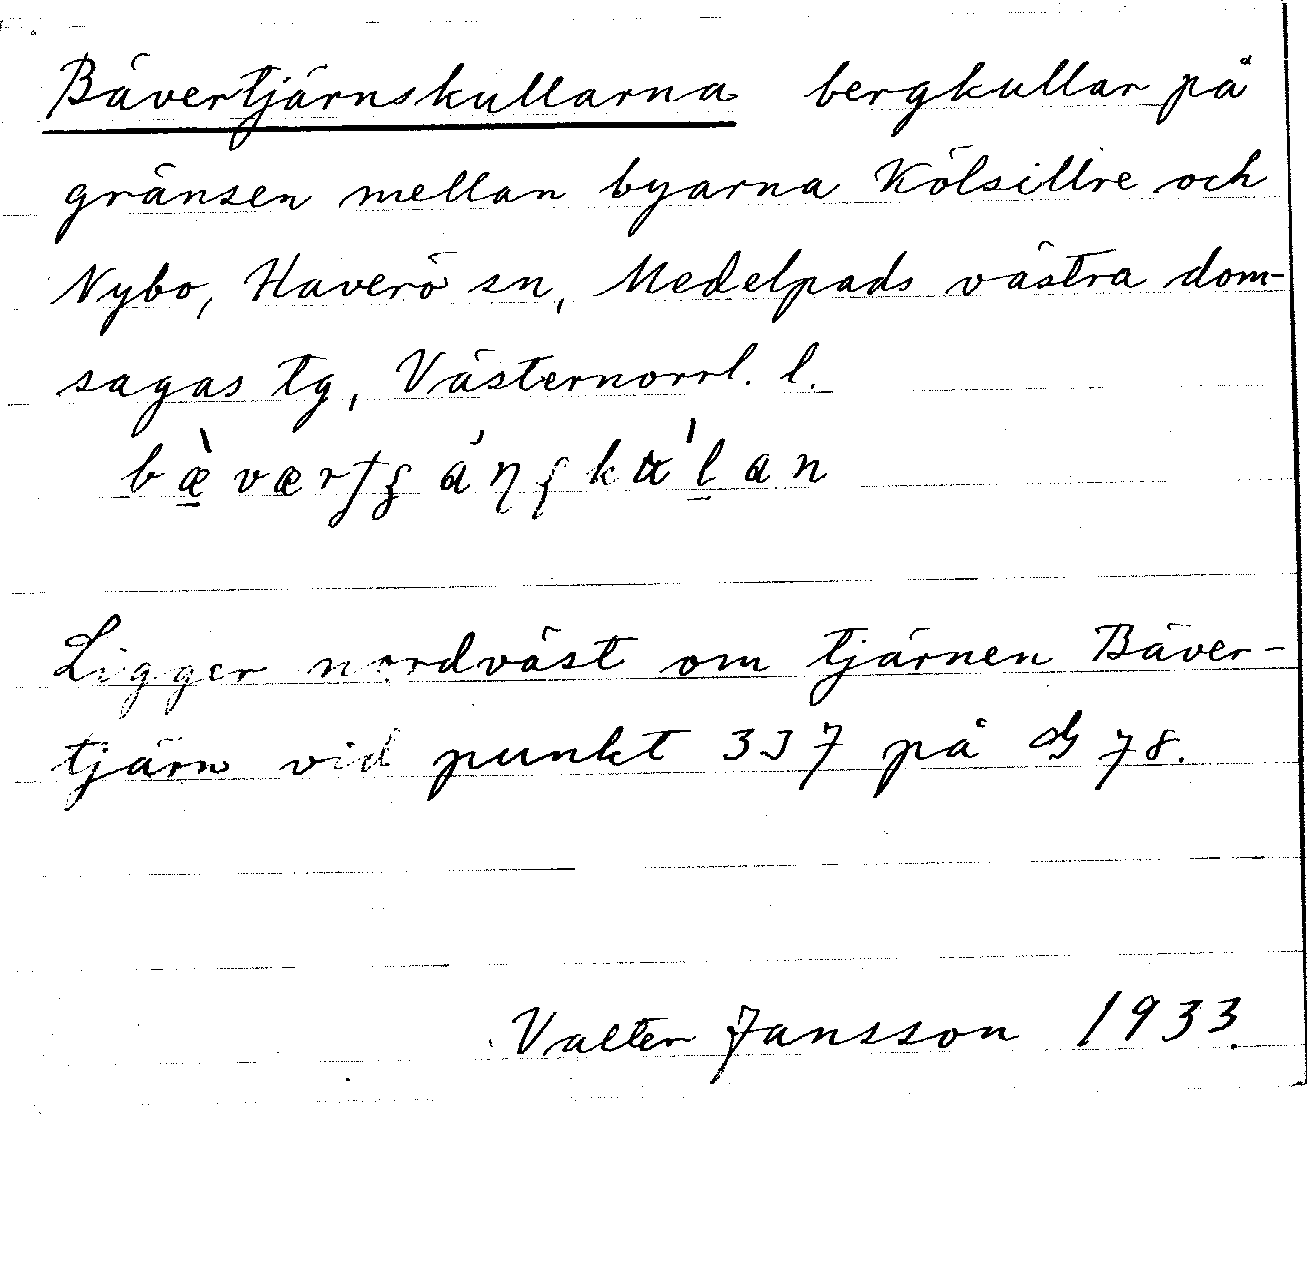 Bävertjärnskullarna bergkullar på
gränsen mellan byarna Kölsillre och
Nybo, Haverö sn, Medelpads västra dom-
sagas tg, Västernorrl. l.
Ligger nordväst om tjärnen Bäver-
tjärn vid punkt 337 på G 78.
Valter Jansson 1933.